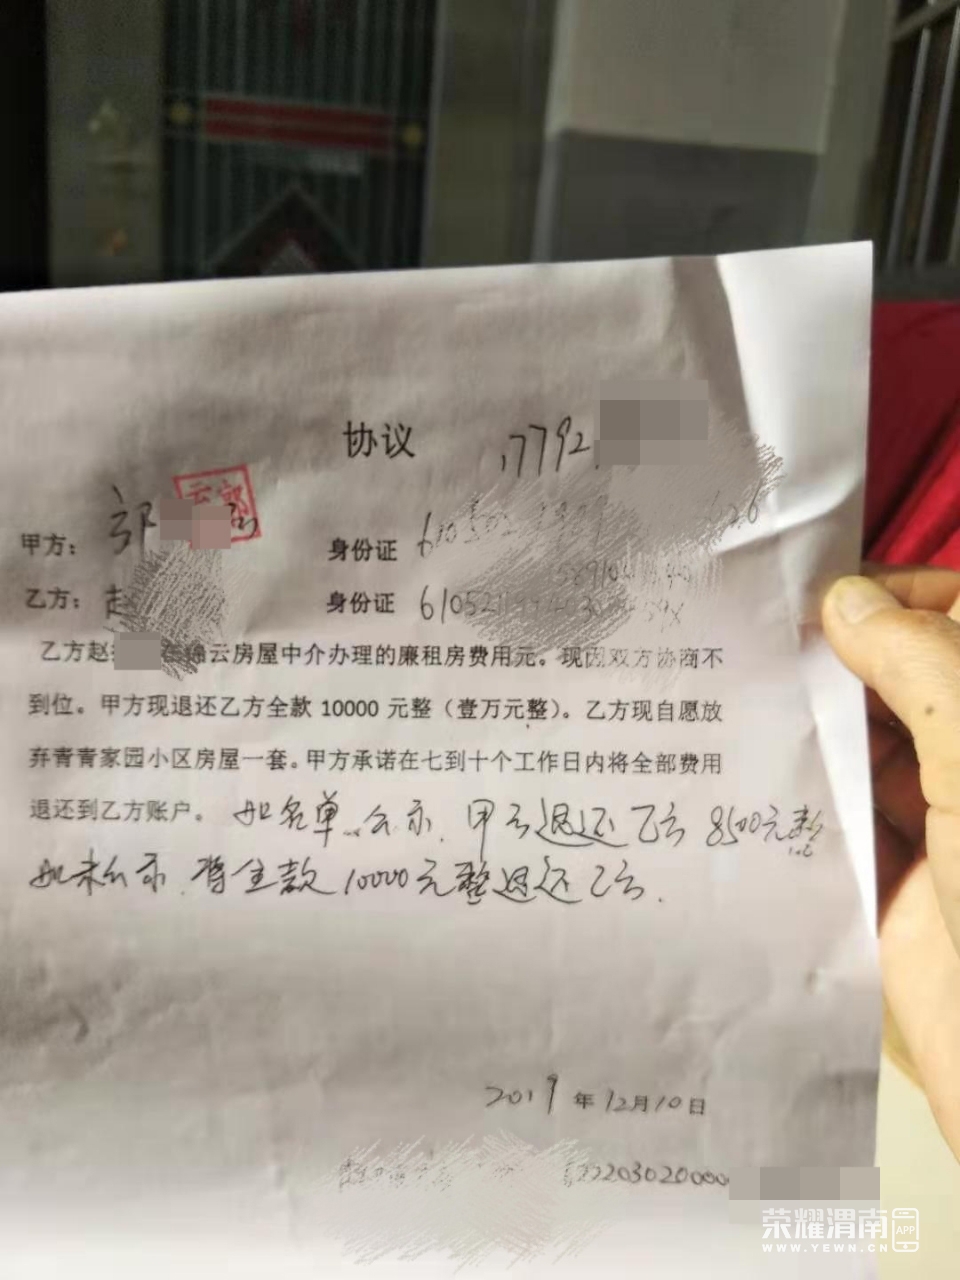 协议
17792
甲方：
身份证 610
乙方：赵
身份证 610521
乙方赵 云房屋中介办理的廉租房费用元。现因双方协商不
到位。甲方现退还乙方全款 10000 元整（壹万元整）。乙方现自愿放
弃青青家园小区房屋一套。甲方承诺在七到十个工作日内将全部费用
退还到乙方账户。如名单 公示，甲方退还乙方 8500元整
如未公示，将全款10000元整退还乙方.
2019 年 12月10日
2203020000
荣耀渭南 APP
WWW.YEWN.CN